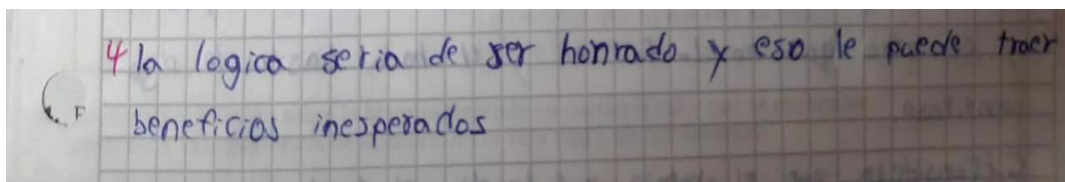 4 la logica seria de ser honrado y eso le puede traer
beneficios inesperados